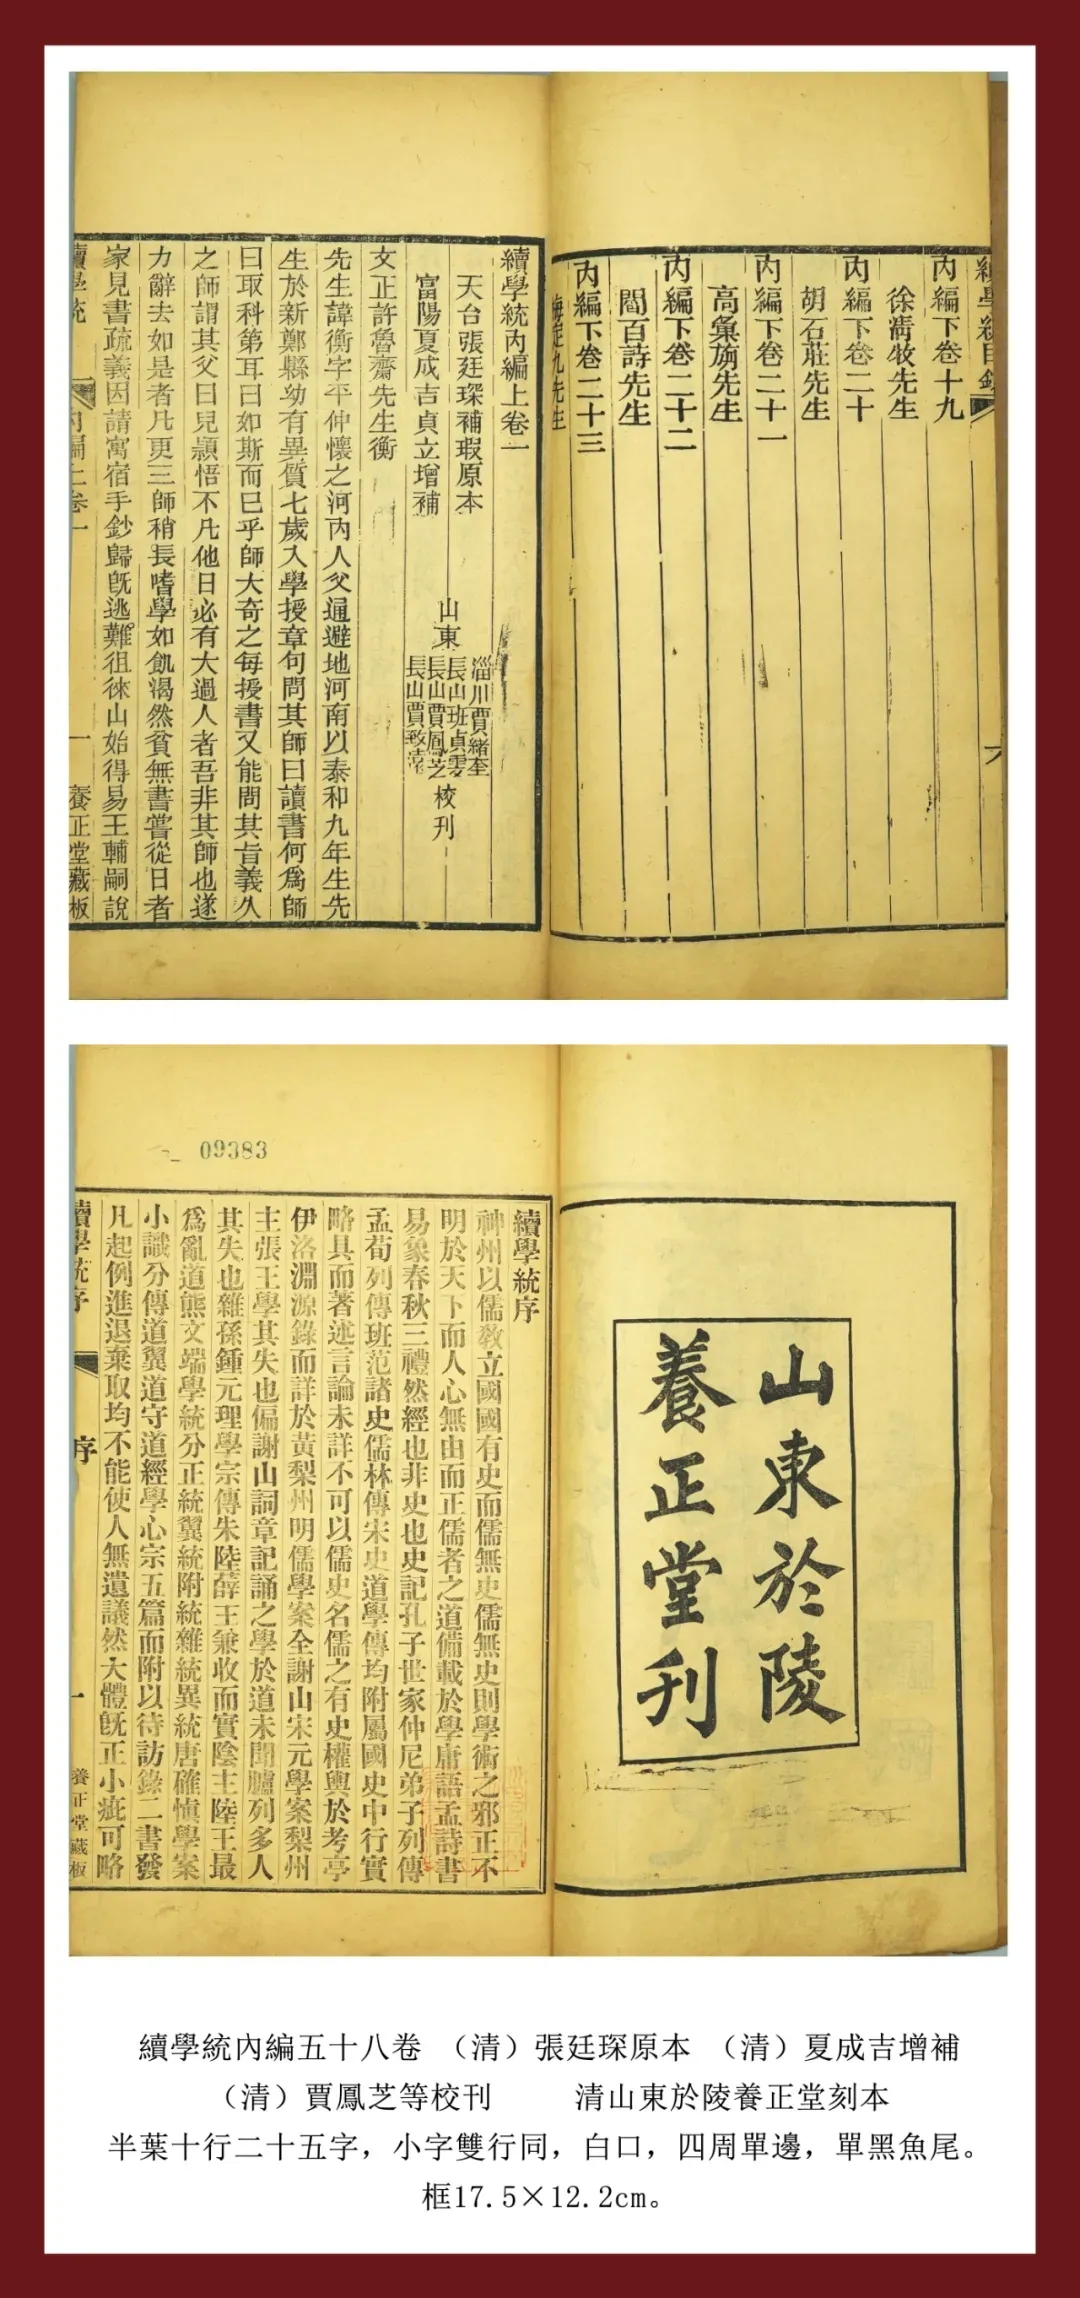 續學統目錄
內編下卷十九
徐清牧先生
內編下卷二十
胡石莊先生
內編下卷二十一
高彙旃先生
內編下卷二十二
閻百詩先生
內編下卷二十三
梅定九先生
續學統內編上卷一
天台張廷琛補瑕原本
富陽夏成吉貞立增補
山東
淄川賈緒奎
長山班貞雯
長山賈鳳芝
長山賈致
校刊
文正許魯齋先生衡
先生諱衡字平仲懷之河內人父通避地河南以泰和九年生先
生於新鄭縣幼有異質七歲入學授章句問其師曰讀書何為師
曰取科第耳曰如斯而已乎師大奇之每授書又能問其旨義久
之師謂其父曰兒穎悟不凡他日必有大過人者吾非其師也遂
力辭去如是者凡更三師稍長嗜學如飢渴然貧無書嘗從日者
家見書疏義因請寓宿手鈔歸既逃難徂徠山始得易王輔嗣說
續學統
內編上卷一
一
養正堂藏板
山東於陵
養正堂刊
09383
續學統序
神州以儒教立國國有史而儒無史儒無史則學術之邪正不
明於天下而人心無由而正儒者之道備載於學庸語孟詩書
易象春秋三禮然經也非史也史記孔子世家仲尼弟子列傳
孟荀列傳班范諸史儒林傳宋史道學傳均附屬國史中行實
略具而著述言論未詳不可以儒史名儒之有史權輿於考亭
伊洛淵源錄而詳於黃梨州明儒學案全謝山宋元學案梨州
主張王學其失也偏謝山詞章記誦之學於道未聞臚列多人
其失也雜孫鍾元理學宗傳朱陸薛王兼收而實陰主陸王最
為亂道熊文端學統分正統翼統附統雜統異統唐確慎學案
小識分傳道翼道守道經學心宗五篇而附以待訪錄二書發
凡起例進退棄取均不能使人無遺議然大體既正小疵可略
續學統序
序
一
養正堂藏板
續學統內編五十八卷 （清）張廷琛原本 （清）夏成吉增補
（清）賈鳳芝等校刊 清山東於陵養正堂刻本
半葉十行二十五字，小字雙行同，白口，四周單邊，單黑魚尾。
框17.5×12.2cm。